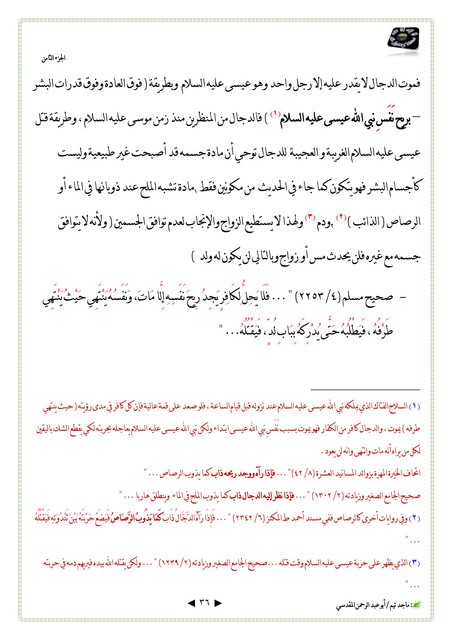 الجزء الثامن
فموت الدجال لا يقدر عليه إلا رجل واحد وهو عيسى عليه السلام وبطريقة ( فوق العادة وفوق قدرات البشر
– بريح نَفَسِ نبي الله عيسى عليه السلام (١) ) فالدجال من المنظرين منذ زمن موسى عليه السلام ، وطريقة قتل
عيسى عليه السلام الغريبة و العجيبة للدجال توحي أن مادة جسمه قد أصبحت غير طبيعية وليست
كأجسام البشر فهو يتكون كما جاء في الحديث من مكونين فقط ,مادة تشبه الملح عند ذوبانها في الماء أو
الرصاص ( الذائب ) (٢) ,ودم (٣) ولهذا لا يستطيع الزواج والإنجاب لعدم توافق الجسمين ( ولأنه لا يتوافق
جسمه مع غيره فلن يحدث مس أو زواج وبالتالي لن يكون له ولد )
– صحيح مسلم (٤/ ٢٢٥٣) " ... فَلَا يَحِلُّ لِكَافِرٍ يَجِدُ رِيحَ نَفَسِهِ إِلَّا مَاتَ، وَنَفَسُهُ يَنْتَهِي حَيْثُ يَنْتَهِي
طَرْفُهُ ، فَيَطْلُبُهُ حَتَّى يُدْرِكَهُ بِبَابِ لُدٍّ، فَيَقْتُلُهُ... "
(١) السلاح الفتاك الذي يملكه نبي الله عيسى عليه السلام عند نزوله قبل قيام الساعة ، فلو صعد على قمة عالية فإن كل كافر في مدى رؤيته ( حيث ينتهي
طرفه ) يموت ، والدجال كافر من الكفار فهو يموت بسبب نَفَس نبي الله عيسى ابتداء ولكن نبي الله عيسى عليه السلام يعاجله بحربته لكي يقطع الشك باليقين
لكل من يراه أنه مات وانتهى وانه لن يعود .
اتحاف الخيرة المهرة بزوائد المسانيد العشرة (٨/ ٤٢) "... فإذا رآه ووجد ريحه ذاب كما يذوب الرصاص ... "
صحيح الجامع الصغير وزيادته (٢/ ١٣٠٢) " ... فإذا نظر إليه الدجال ذاب كما يذوب الملح في الماء و ينطلق هاربا ... "
(٢) وفي روايات أخرى كالرصاص ففي مسند أحمد ط المكنز (٦/ ٢٣٤٢) " ... فَإِذَا رَآهُ الدَّجَّالُ ذَابَ كَمَا يَذُوبُ الرَّصَاصُ فَيَضَعُ حَرْبَتَهُ بَيْنَ ثَنْدُوَتِهِ فَيَقْتُلُهُ
... "
(٣) الذي يظهر على حربة عيسى عليه السلام وقت قتله ... صحيح الجامع الصغير وزيادته (٢/ ١٢٣٩) " ... ولكن يقتله الله بيده فيريهم دمه في حربته
... "
٣٦
: ماجد تيم / أبو عبد الرحمن المقدسي